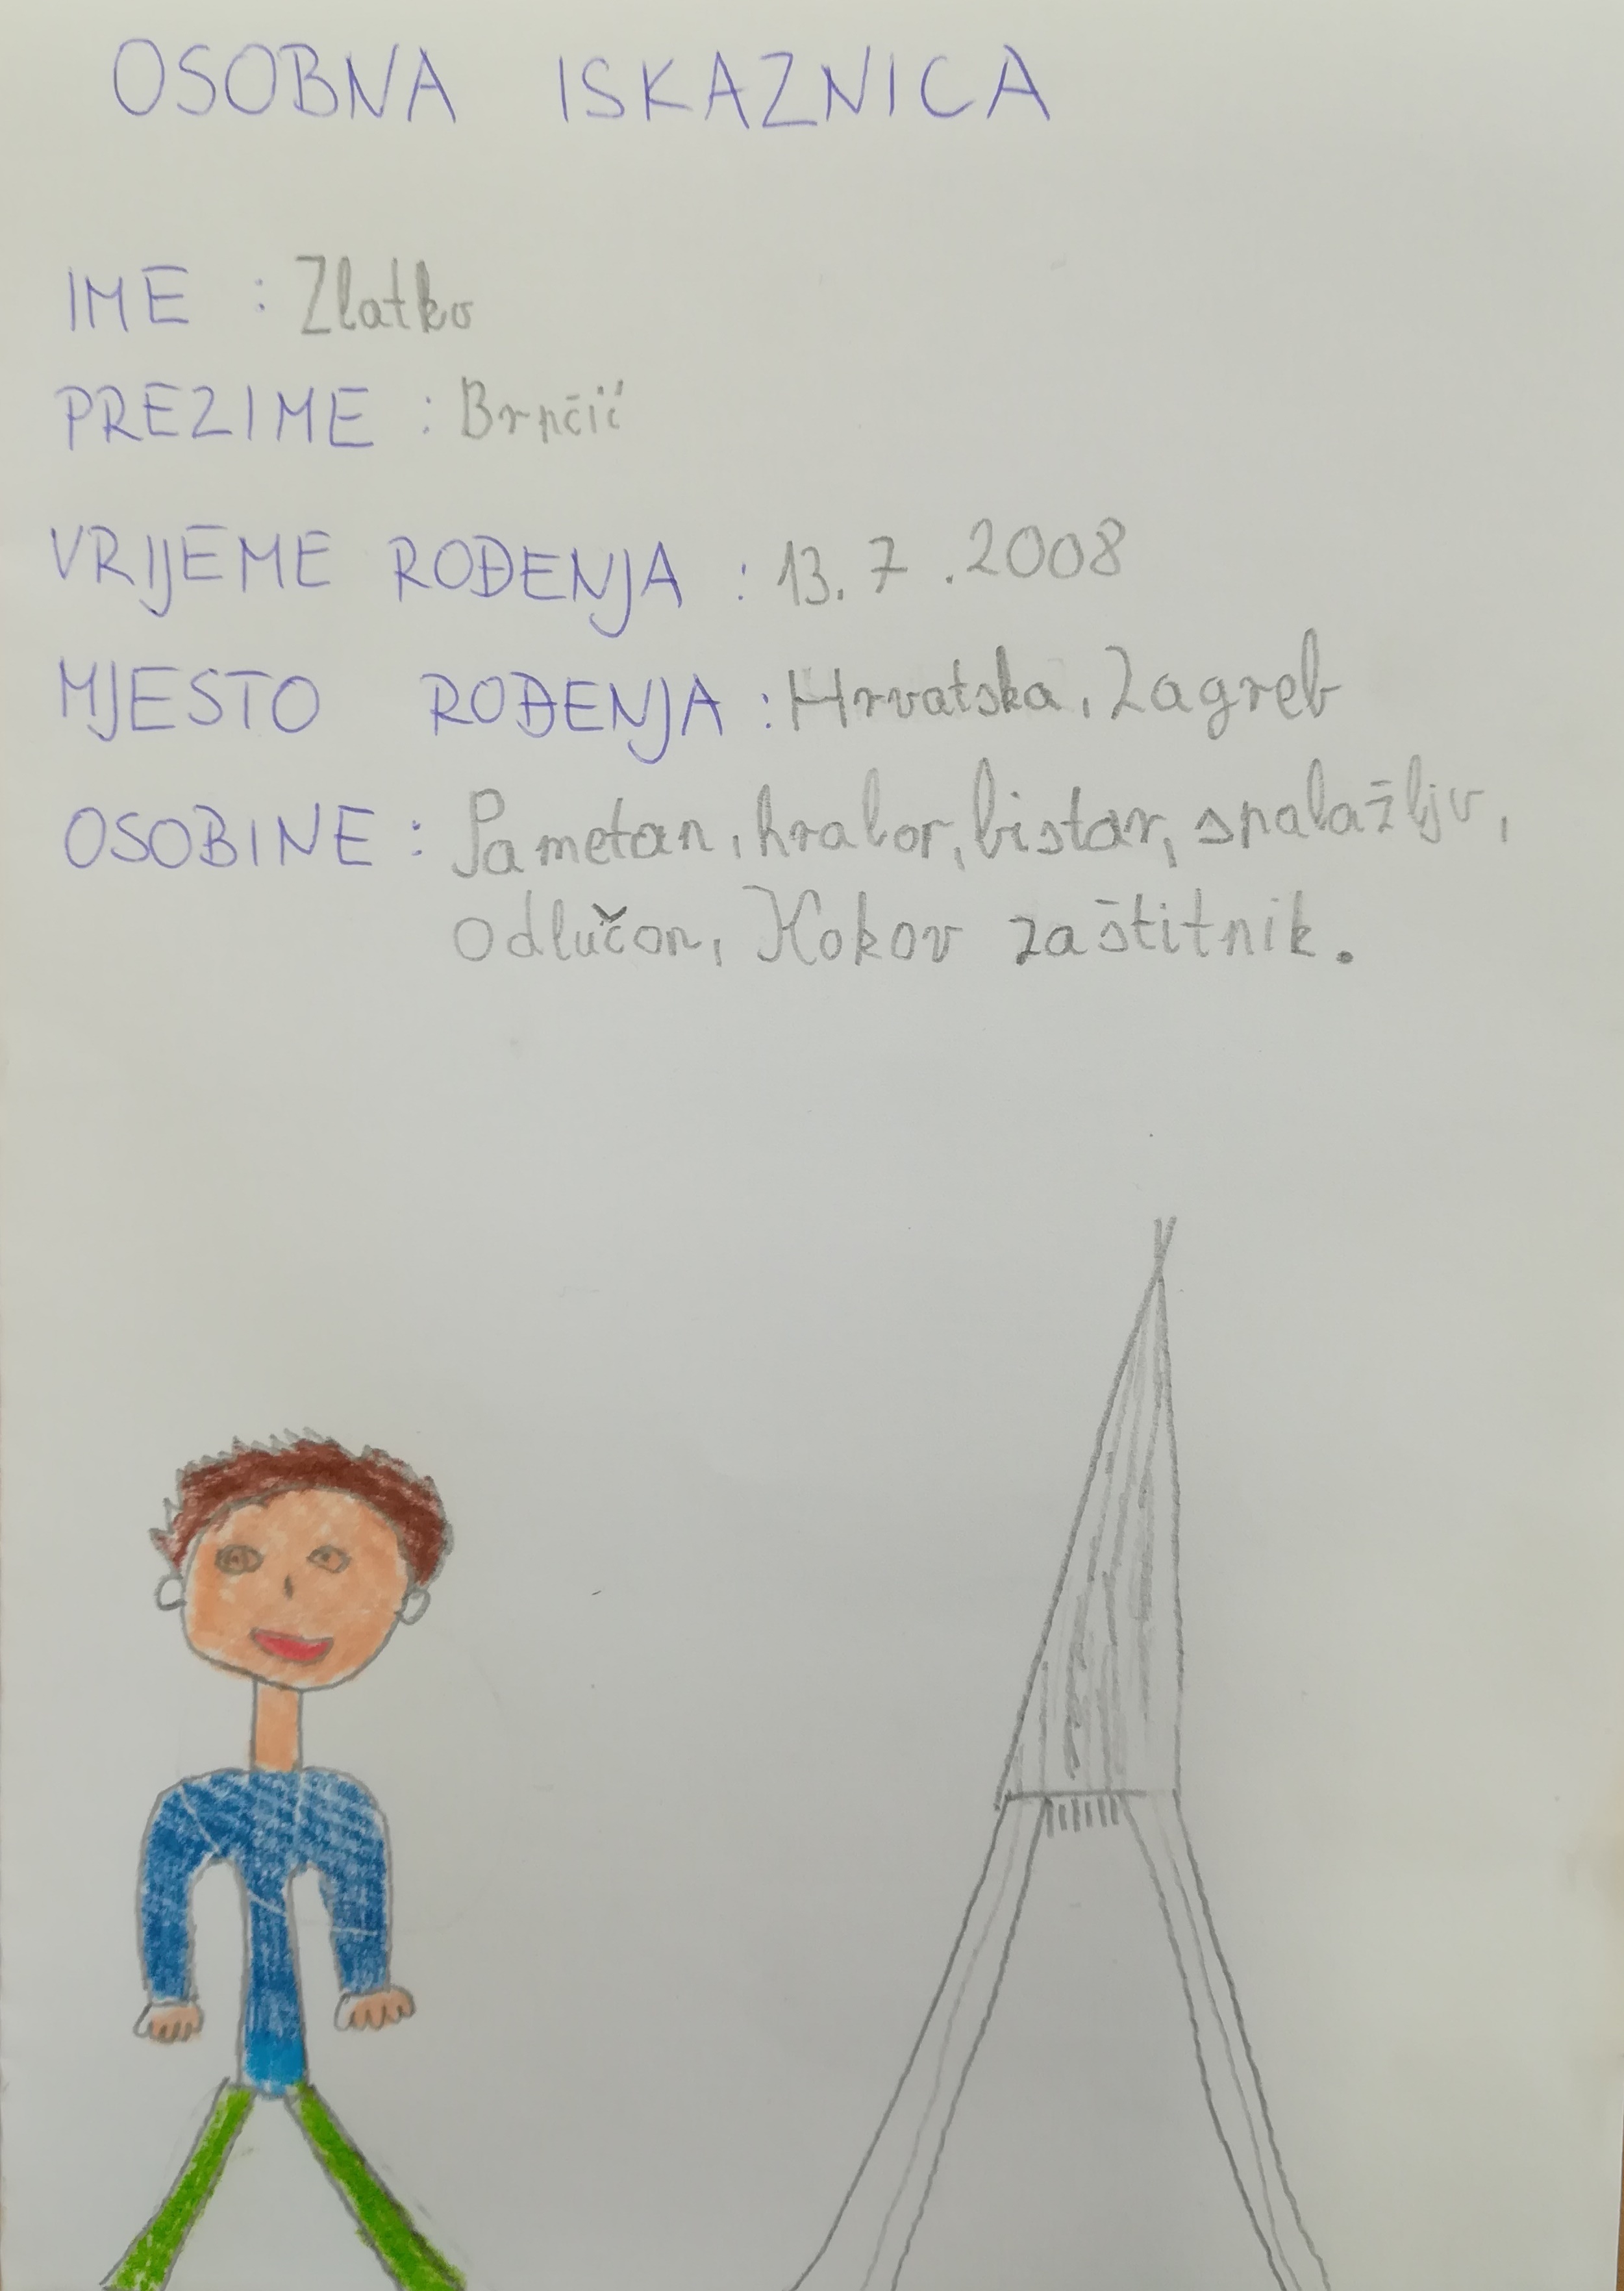 OSOBNA ISKAZNICA
IME : Zlatko
PREZIME : Brnčić
VRIJEME ROĐENJA : 13. 7 .2008
MJESTO ROĐENJA : Hrvatska, Zagreb
OSOBINE : Pametan, hrabor, bistar, snalažljiv,
Odlučan, Kokov zaštitnik.